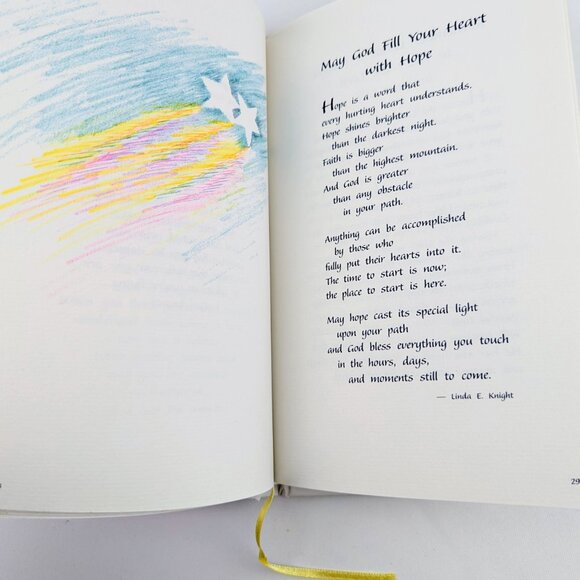 May God Fill Your Heart
with Hope
Hope is a word that
every hurting heart understands.
Hope shines brighter
than the darkest night.
Faith is bigger
than the highest mountain.
And God is greater
than any obstacle
in your path.
Anything can be accomplished
by those who
fully put their hearts into it.
The time to start is now;
the place to start is here.
May hope cast its special light
upon your path
and God bless everything you touch
in the hours, days,
and moments still to come.
— Linda E. Knight
29